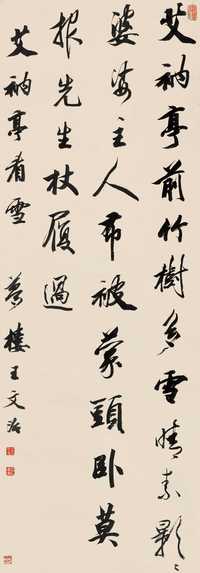 艾衲亭前竹樹多雪晴素影
婆娑主人布被蒙頭臥莫
報先生杖履過
艾衲亭看雪 夢樓王文治